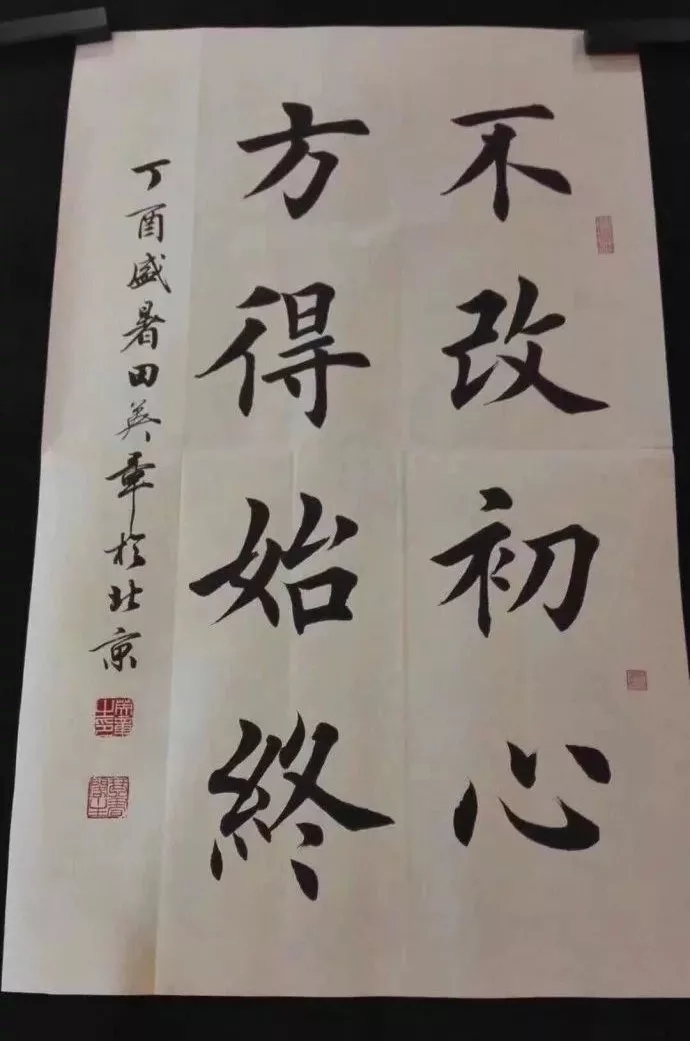 不改初心
方得始終
丁酉盛暑田英章於北京